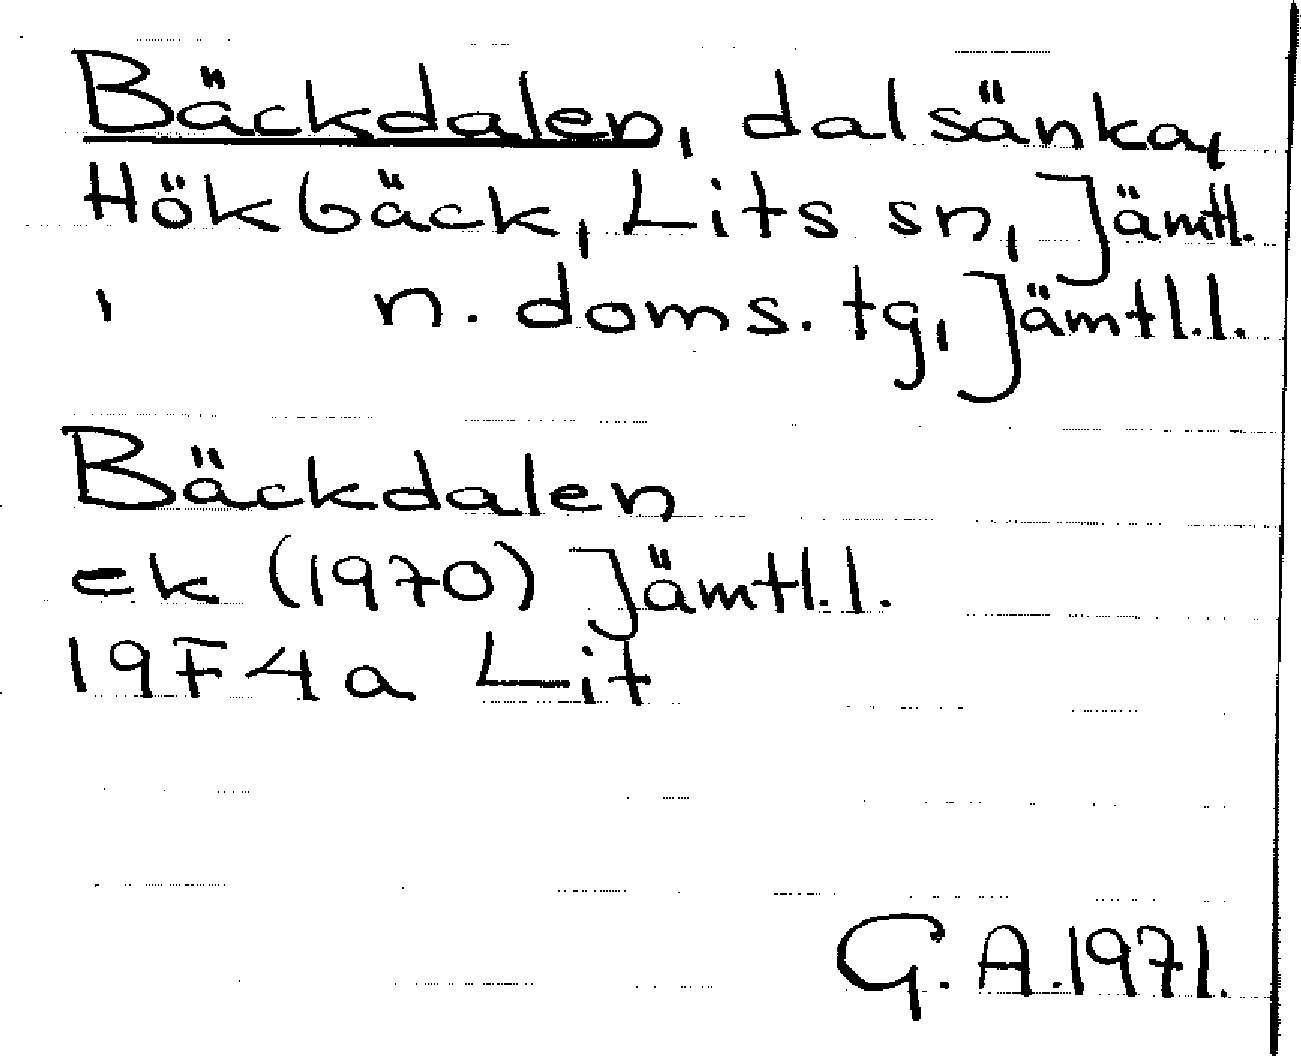 Bäckdalen, dalsänka,
Hökbäck, Lits sn, Jämtl.
, n. doms. tg, Jämtl.l.
Bäckdalen
ek (1970) Jämtl.l.
19F4a Lit
G.A.1971.